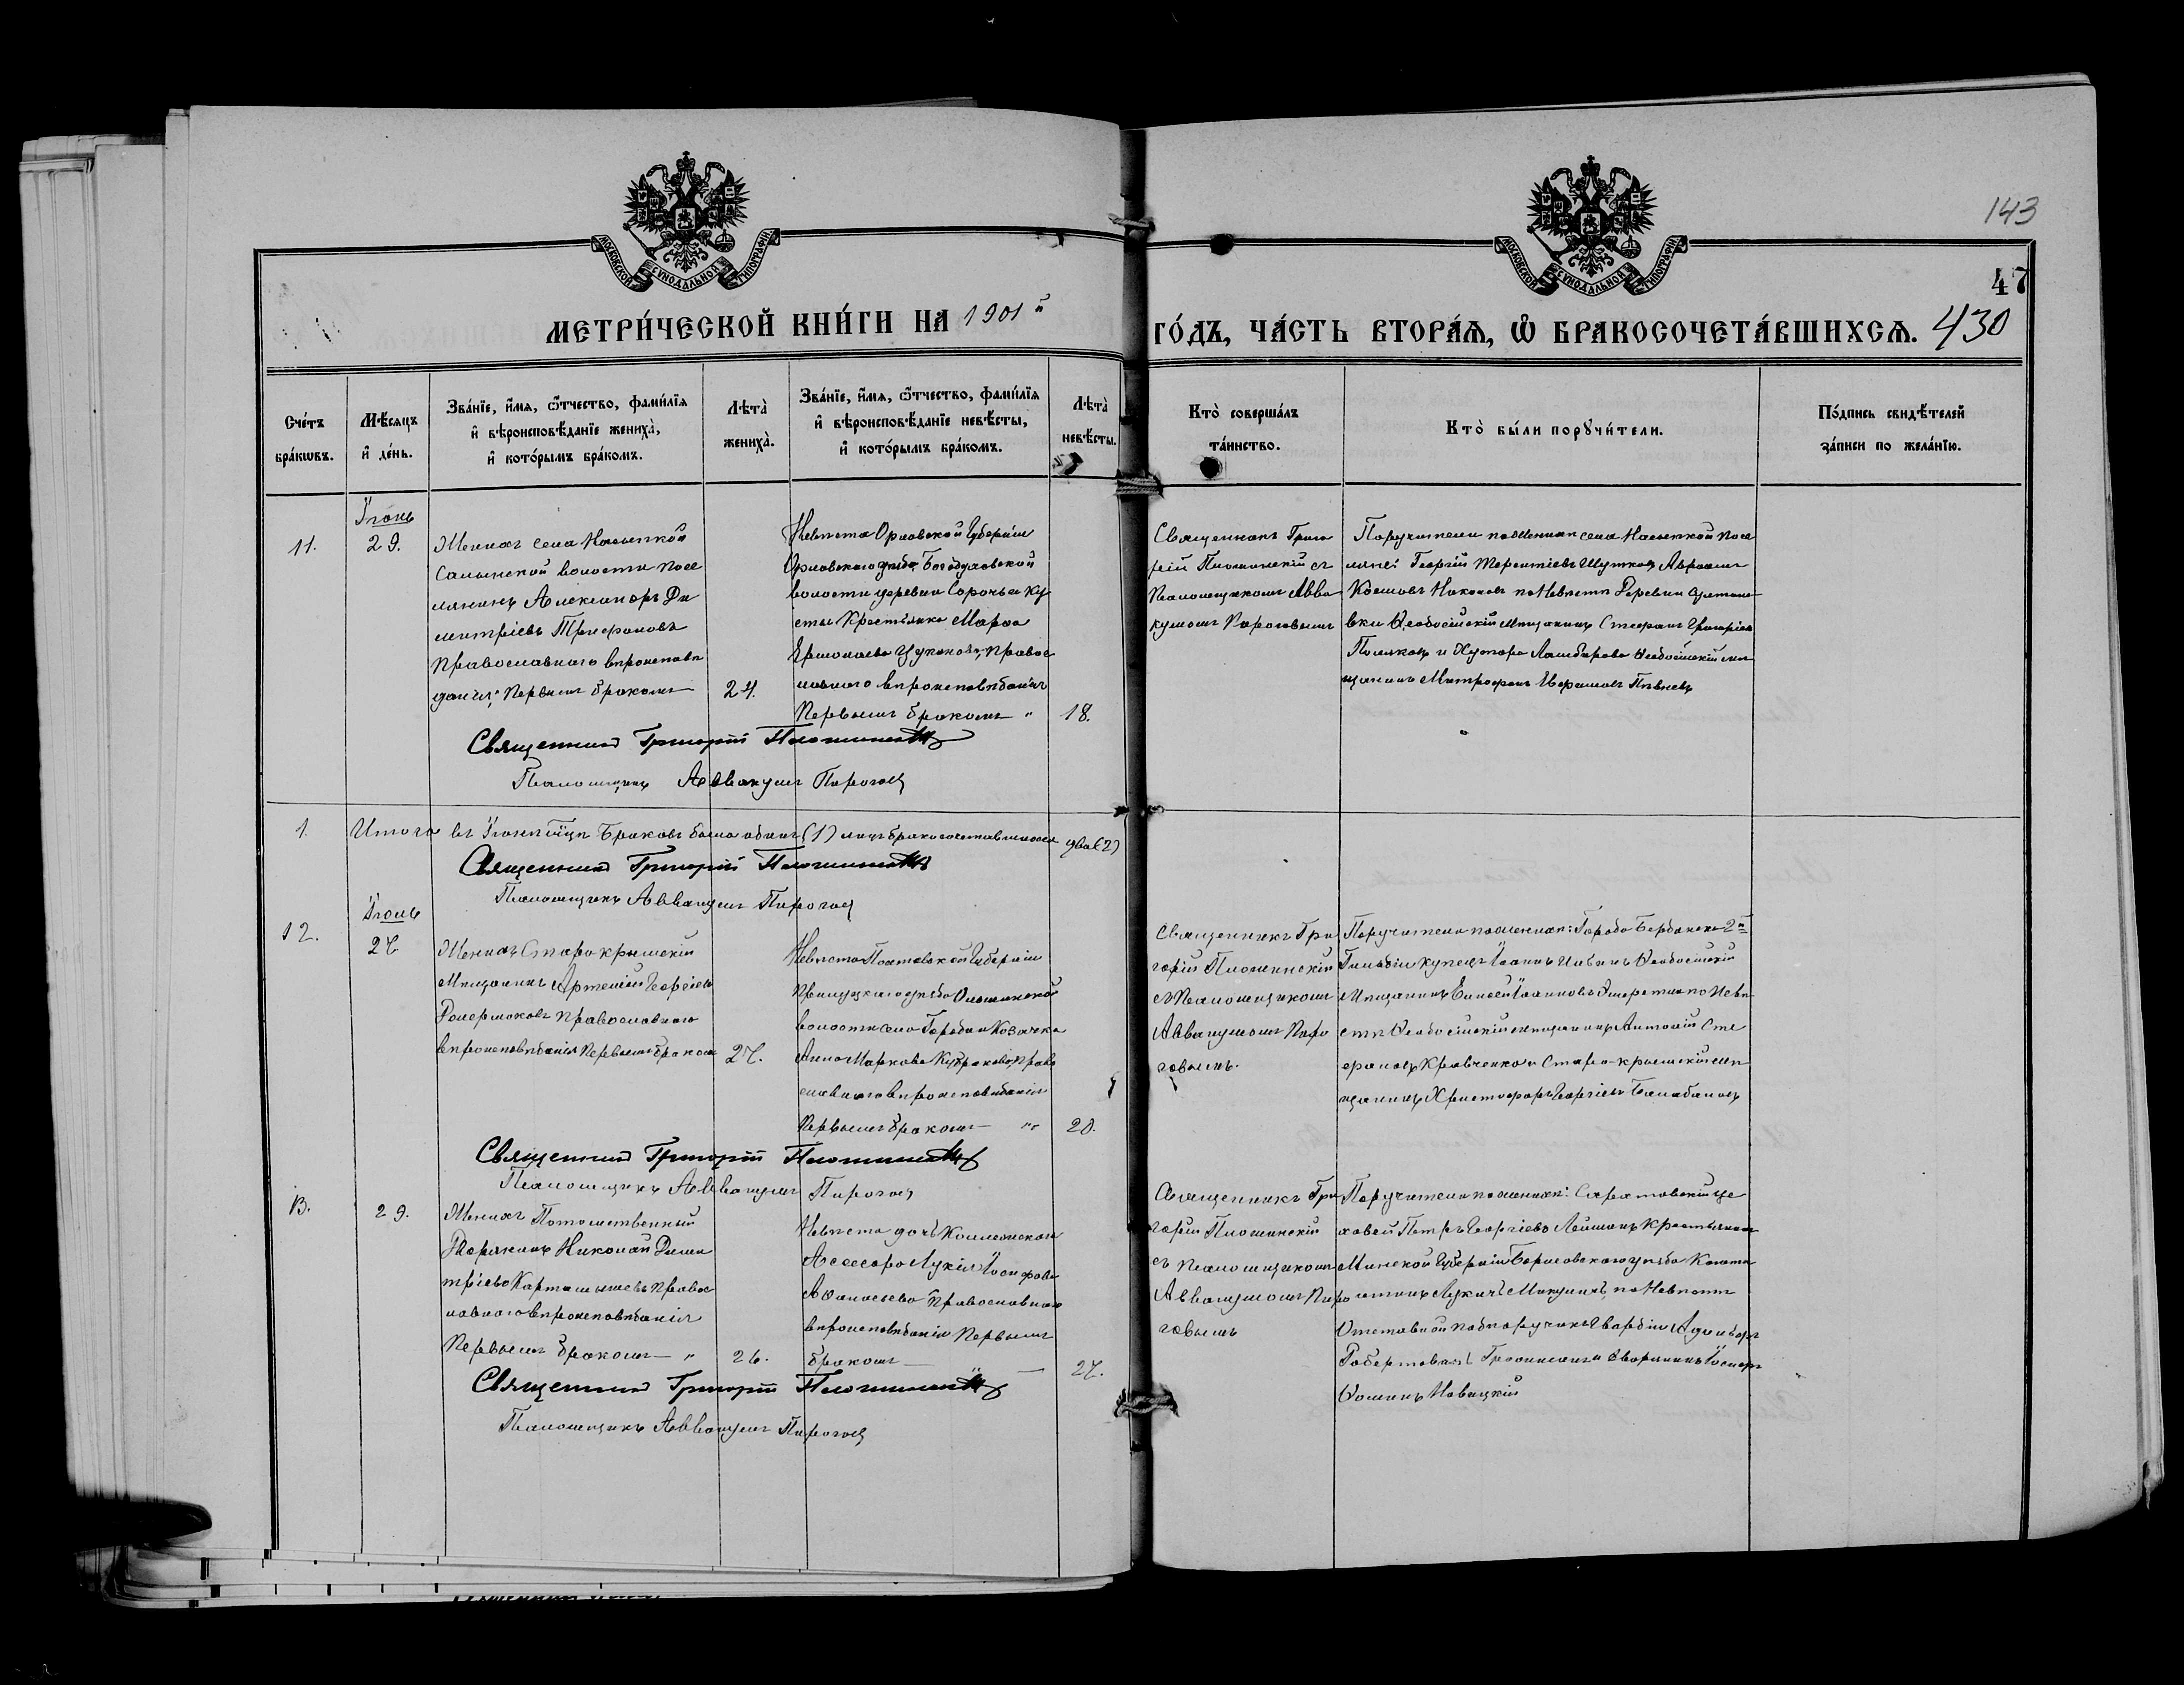 143
47
МОСКОВСКОЙ СѴНОДАЛЬНОЙ ТИПОГРАФІИ
МОСКОВСКОЙ СѴНОДАЛЬНОЙ ТИПОГРАФІИ
МЕТРИ́ЧЕСКОЙ КНИ́ГИ НА 1901й ГО́ДЪ, ЧА́СТЬ ВТОРА́Я, Ѽ БРАКОСОЧЕТА́ВШИХСЯ. 430
Сче́тъ бра́кѡвъ.
Мѣ́сяцъ и҆ де́нь.
Зва́нїе, и҆́мя, ѻ҆́тчество, фами́лїя и҆ вѣроисповѣ́данїе жениха̀, и҆ кото́рымъ бра́комъ.
Лѣта̀ жениха̀.
Зва́нїе, и҆́мя, ѻ҆́тчество, фами́лїя и҆ вѣроисповѣ́данїе невѣ́сты, и҆ кото́рымъ бра́комъ.
Лѣта̀ невѣ́сты.
Кто̀ соверша́лъ та́инство.
Кто̀ бы́ли порꙋчи́тели.
По́дпись свидѣ́телей за́писи по жела́нїю.
11.
Іюнь
29.
Женихъ села Насыпкой
Салынской волости посе
лянинъ Александръ Ди
митріевъ Трифоновъ
Православнаго вѣроисповѣ
данія, Первымъ бракомъ
24.
Невѣста Орловской Губерніи
Орловскаго уѣзда Богодуховской
волости деревни Сорочьи Ку
сты Крестьянка
Ермолаева Цуканова, Правос
лавнаго вѣроисповѣданія
Первымъ бракомъ "
18.
Священникъ Григо
рій Пломинскій съ
Псаломщикомъ Авва
кумомъ Пироговымъ
Поручители по Женихѣ села Насыпкой посе
ляне: Георгій Терентіевъ Шутковъ
по Невѣстѣ Деревни
Ѳеодосійскій мѣщанинъ Стефанъ Григоріевъ
Поляковъ и Хутора Ѳеодосійскій мѣ
щанинъ Митрофанъ
Священникъ Григорій Пломинскій
Псаломщикъ Аввакумъ Пироговъ
1.
Итого въ Іюнѣ м҃цѣ Браковъ было одинъ (1) лицъ бракосочетавшихся два (2)
Священникъ Григорій Пломинскій
Псаломщикъ Аввакумъ Пироговъ
12.
Іюль
27.
Женихъ Старокрымскій
Мѣщанинъ Артемій Георгіевъ
Православнаго
вѣроисповѣданія Первымъ бракомъ
27.
Невѣста Полтавской Губерніи
Прилуцкаго уѣзда
волости села Козачка
Анна Маркова Право
славнаго вѣроисповѣданія
Первымъ бракомъ "
20.
Священникъ Гри
горій Пломинскій
съ Псаломщикомъ
Аввакумомъ Пиро
говымъ.
Поручители по женихѣ: Города Бердянска 2й
Гильдіи купецъ Іоаннъ Ѳеодосійскій
Мѣщанинъ по Невѣ
стѣ Ѳеодосійскій мѣщанинъ Антоній Сте
фановъ Кравченко и Старо-крымскій мѣ
щанинъ Христофоръ Георгіевъ Балабановъ
Священникъ Григорій Пломинскій
Псаломщикъ Аввакумъ Пироговъ
13.
29.
Женихъ Потомственный
Дворянинъ Николай Дими
тріевъ Карташышевъ Правос
лавнаго вѣроисповѣданія
Первымъ бракомъ "
26.
Невѣста дочь Коллежскаго
Ассесора Лукія Іосифова
Аѳанасьева Православнаго
вѣроисповѣданія Первымъ
бракомъ
27.
Священникъ Гри
горій Пломинскій
съ Псаломщикомъ
Аввакумомъ Пиро
говымъ
Поручители по женихѣ: Саратовскій це
ховой Петръ Георгіевъ Крестьянинъ
Минской Губерніи Борисовскаго уѣзда
по Невѣстѣ
Отставной подпоручикъ Гвардіи Адольфъ
Робертовичъ и дворянинъ Іосифъ
Ѳоминъ Новицкій
Священникъ Григорій Пломинскій
Псаломщикъ Аввакумъ Пироговъ